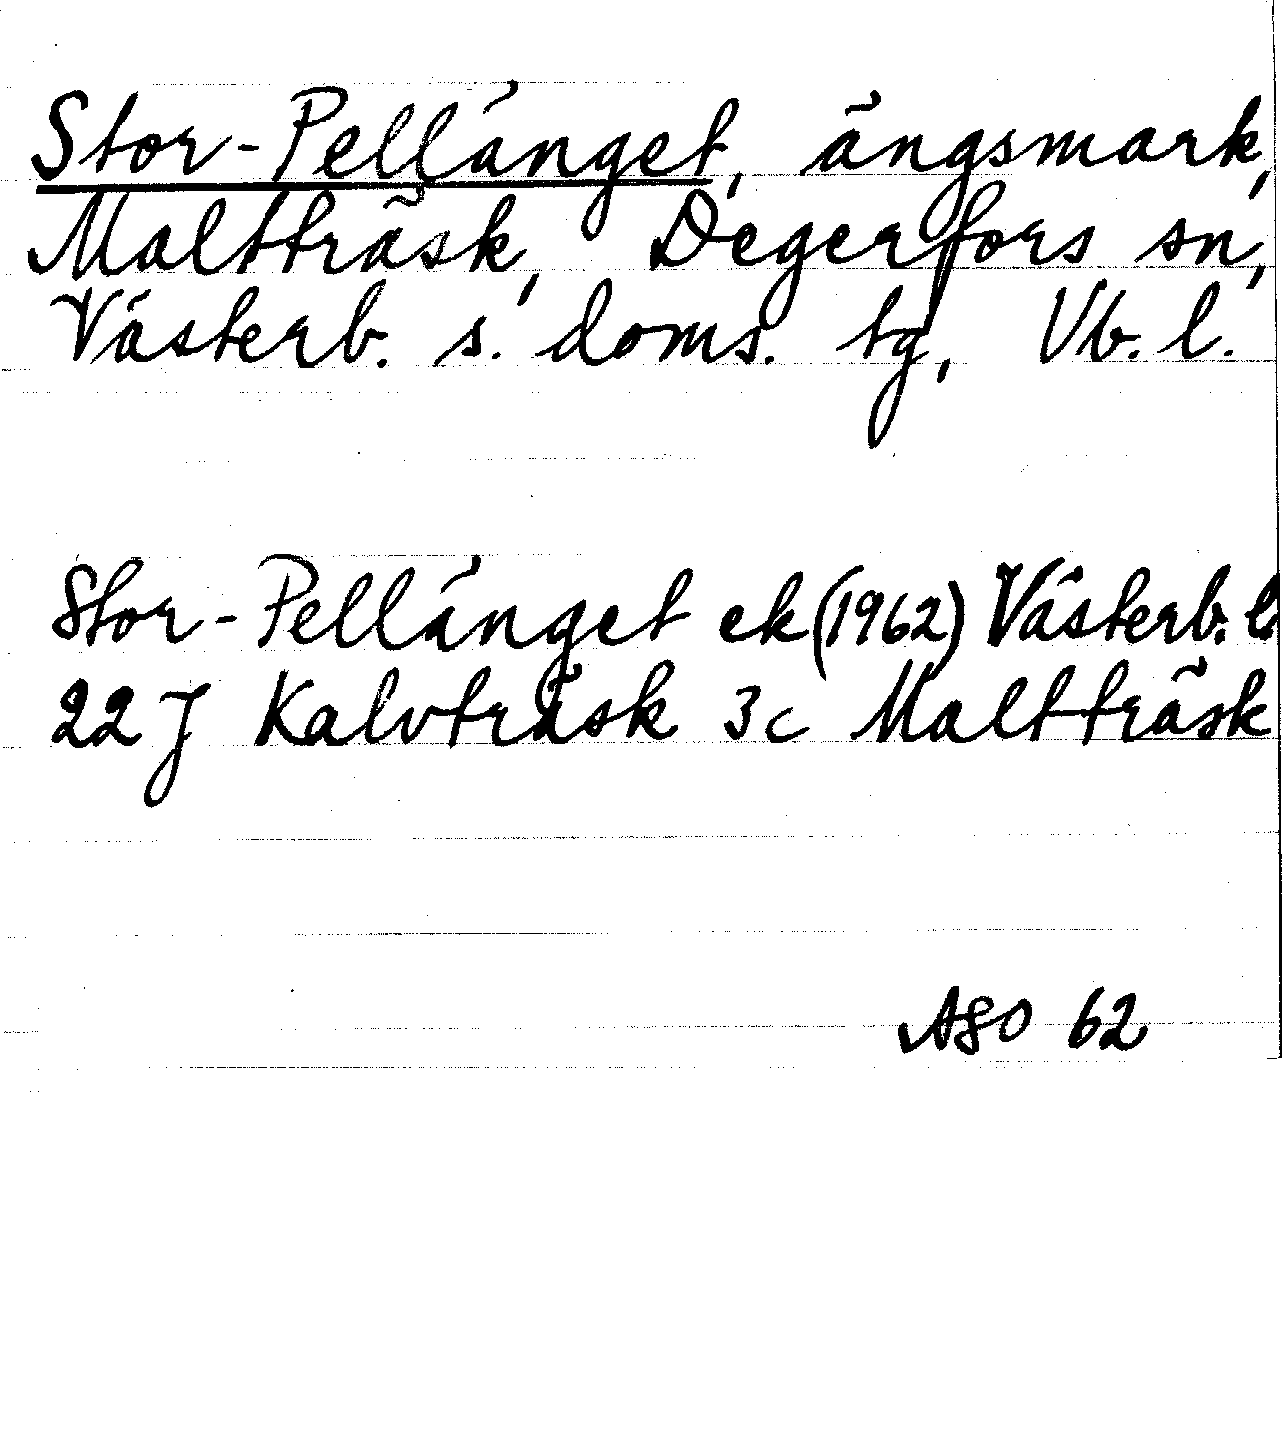 Stor-Pellänget, ängsmark,
Maltträsk, Degerfors sn,
Västerb. s. doms. tg, Vb. l.
Stor-Pellänget ek (1962) Västerb. l.
22 J Kalvträsk 3c Maltträsk
ASO 62